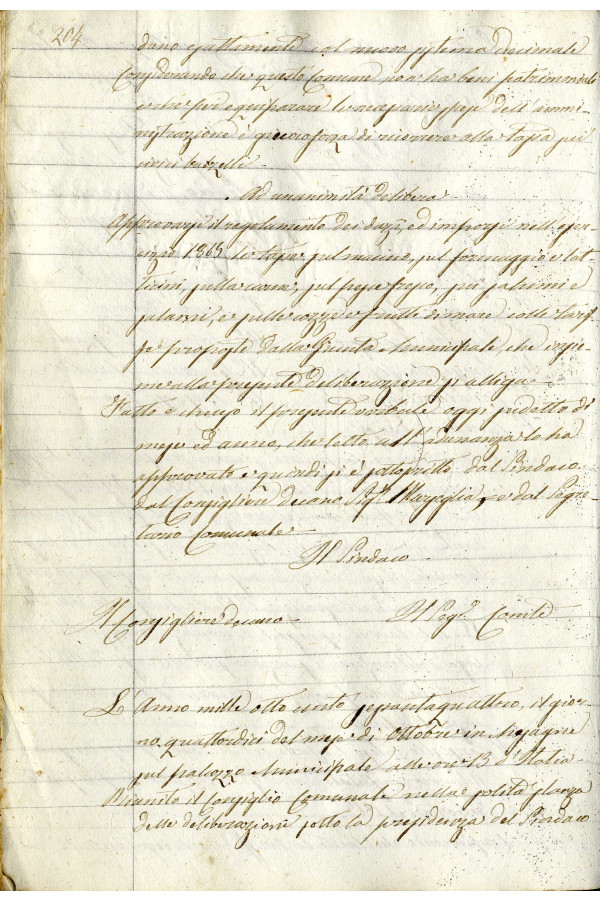 204
dano esattamente col nuovo sistema decimale
Considerando che questo Comune non ha beni patrimoniali
e che per equiparare le necessarie spese dell'ammi-
nistrazione è giuocoforza di ricorrere alla tassa pei
civici balzelli
Ad unanimità delibera
Approvarsi il regolamento dei dazî, ed imporsi nell'eser-
cizio 1865 le tasse sul macino, sul formaggio e lat-
ticini, sulla carne, sul pesce fresco, sui salumi e
salami, e sulle cozze e frutti di mare colle tarif-
fe proposte dalla Giunta Municipale, che insie-
me alla presente deliberazione si alliga
Fatto e chiuso il presente verbale oggi sudetto dì
mese ed anno, che letto all'adunanza lo ha
approvato e quindi si è sottoscritto dal Sindaco
dal Consigliere decano Sigr. e dal Segre-
tario Comunale
Il Sindaco
Il Consigliere decano Il Segr.
L'Anno mille otto cento sessantaquattro, il gior-
no quattordici del mese di Ottobre in
sul palazzo Municipale alle ore 13 d'Italia
Riunito il Consiglio Comunale nella solita stanza
delle deliberazioni sotto la presidenza del Sindaco